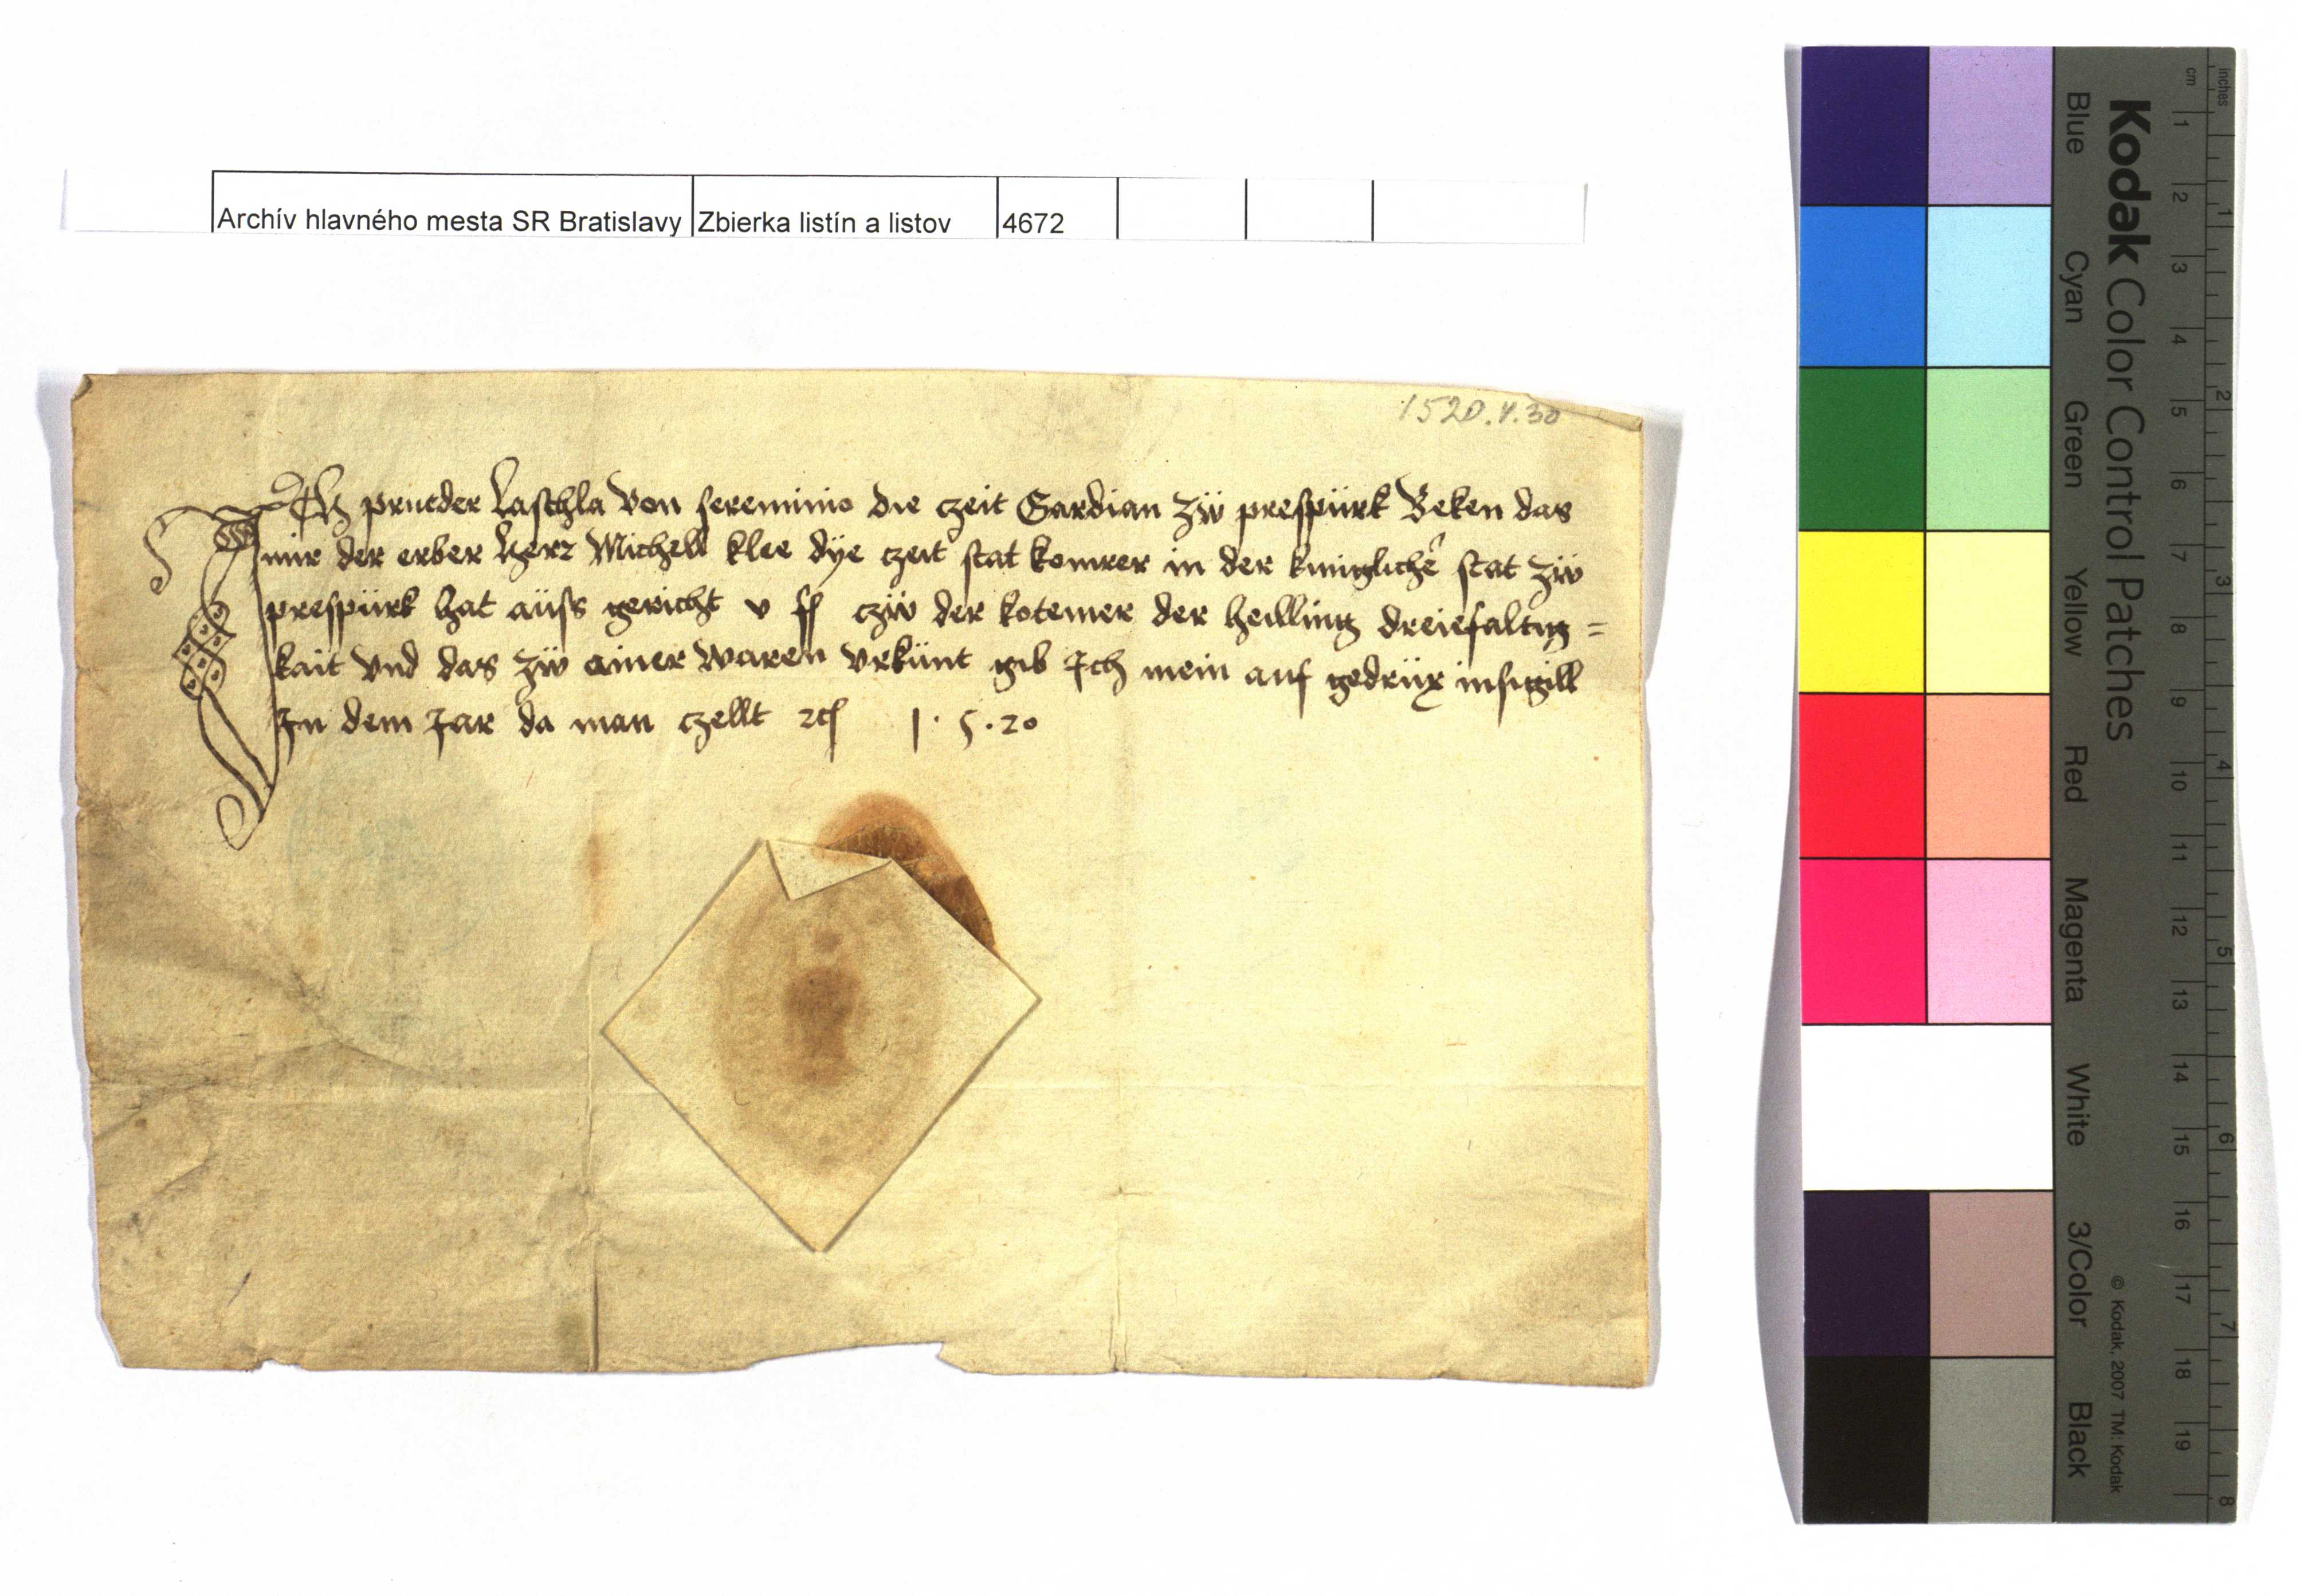 Archív hlavného mesta SR Bratislavy Zbierka listín a listov 4672
1520.V.30
Ich prueder Laschla Von sereminio die czeit Gardian zẅ prespürk Beken das
mir der erber herr Michell klee dÿe czeit stat komrer in der kuniglichē stat zẅ
prespürk hat aüss gericht v ſſ czẅ der kotemer der heilling dreiefaltig =
kait Vnd das zẅ ainer Waren Vrkünt gib Ich mein auf gedrüx insigill
In dem Jar da man czellt 1 . 5 . 20
Kodak Color Control Patches
Blue Cyan Green Yellow Red Magenta White 3/Color Black
© Kodak, 2007 TM: Kodak
inches 1 2 3 4 5 6 7 8
cm 1 2 3 4 5 6 7 8 9 10 11 12 13 14 15 16 17 18 19